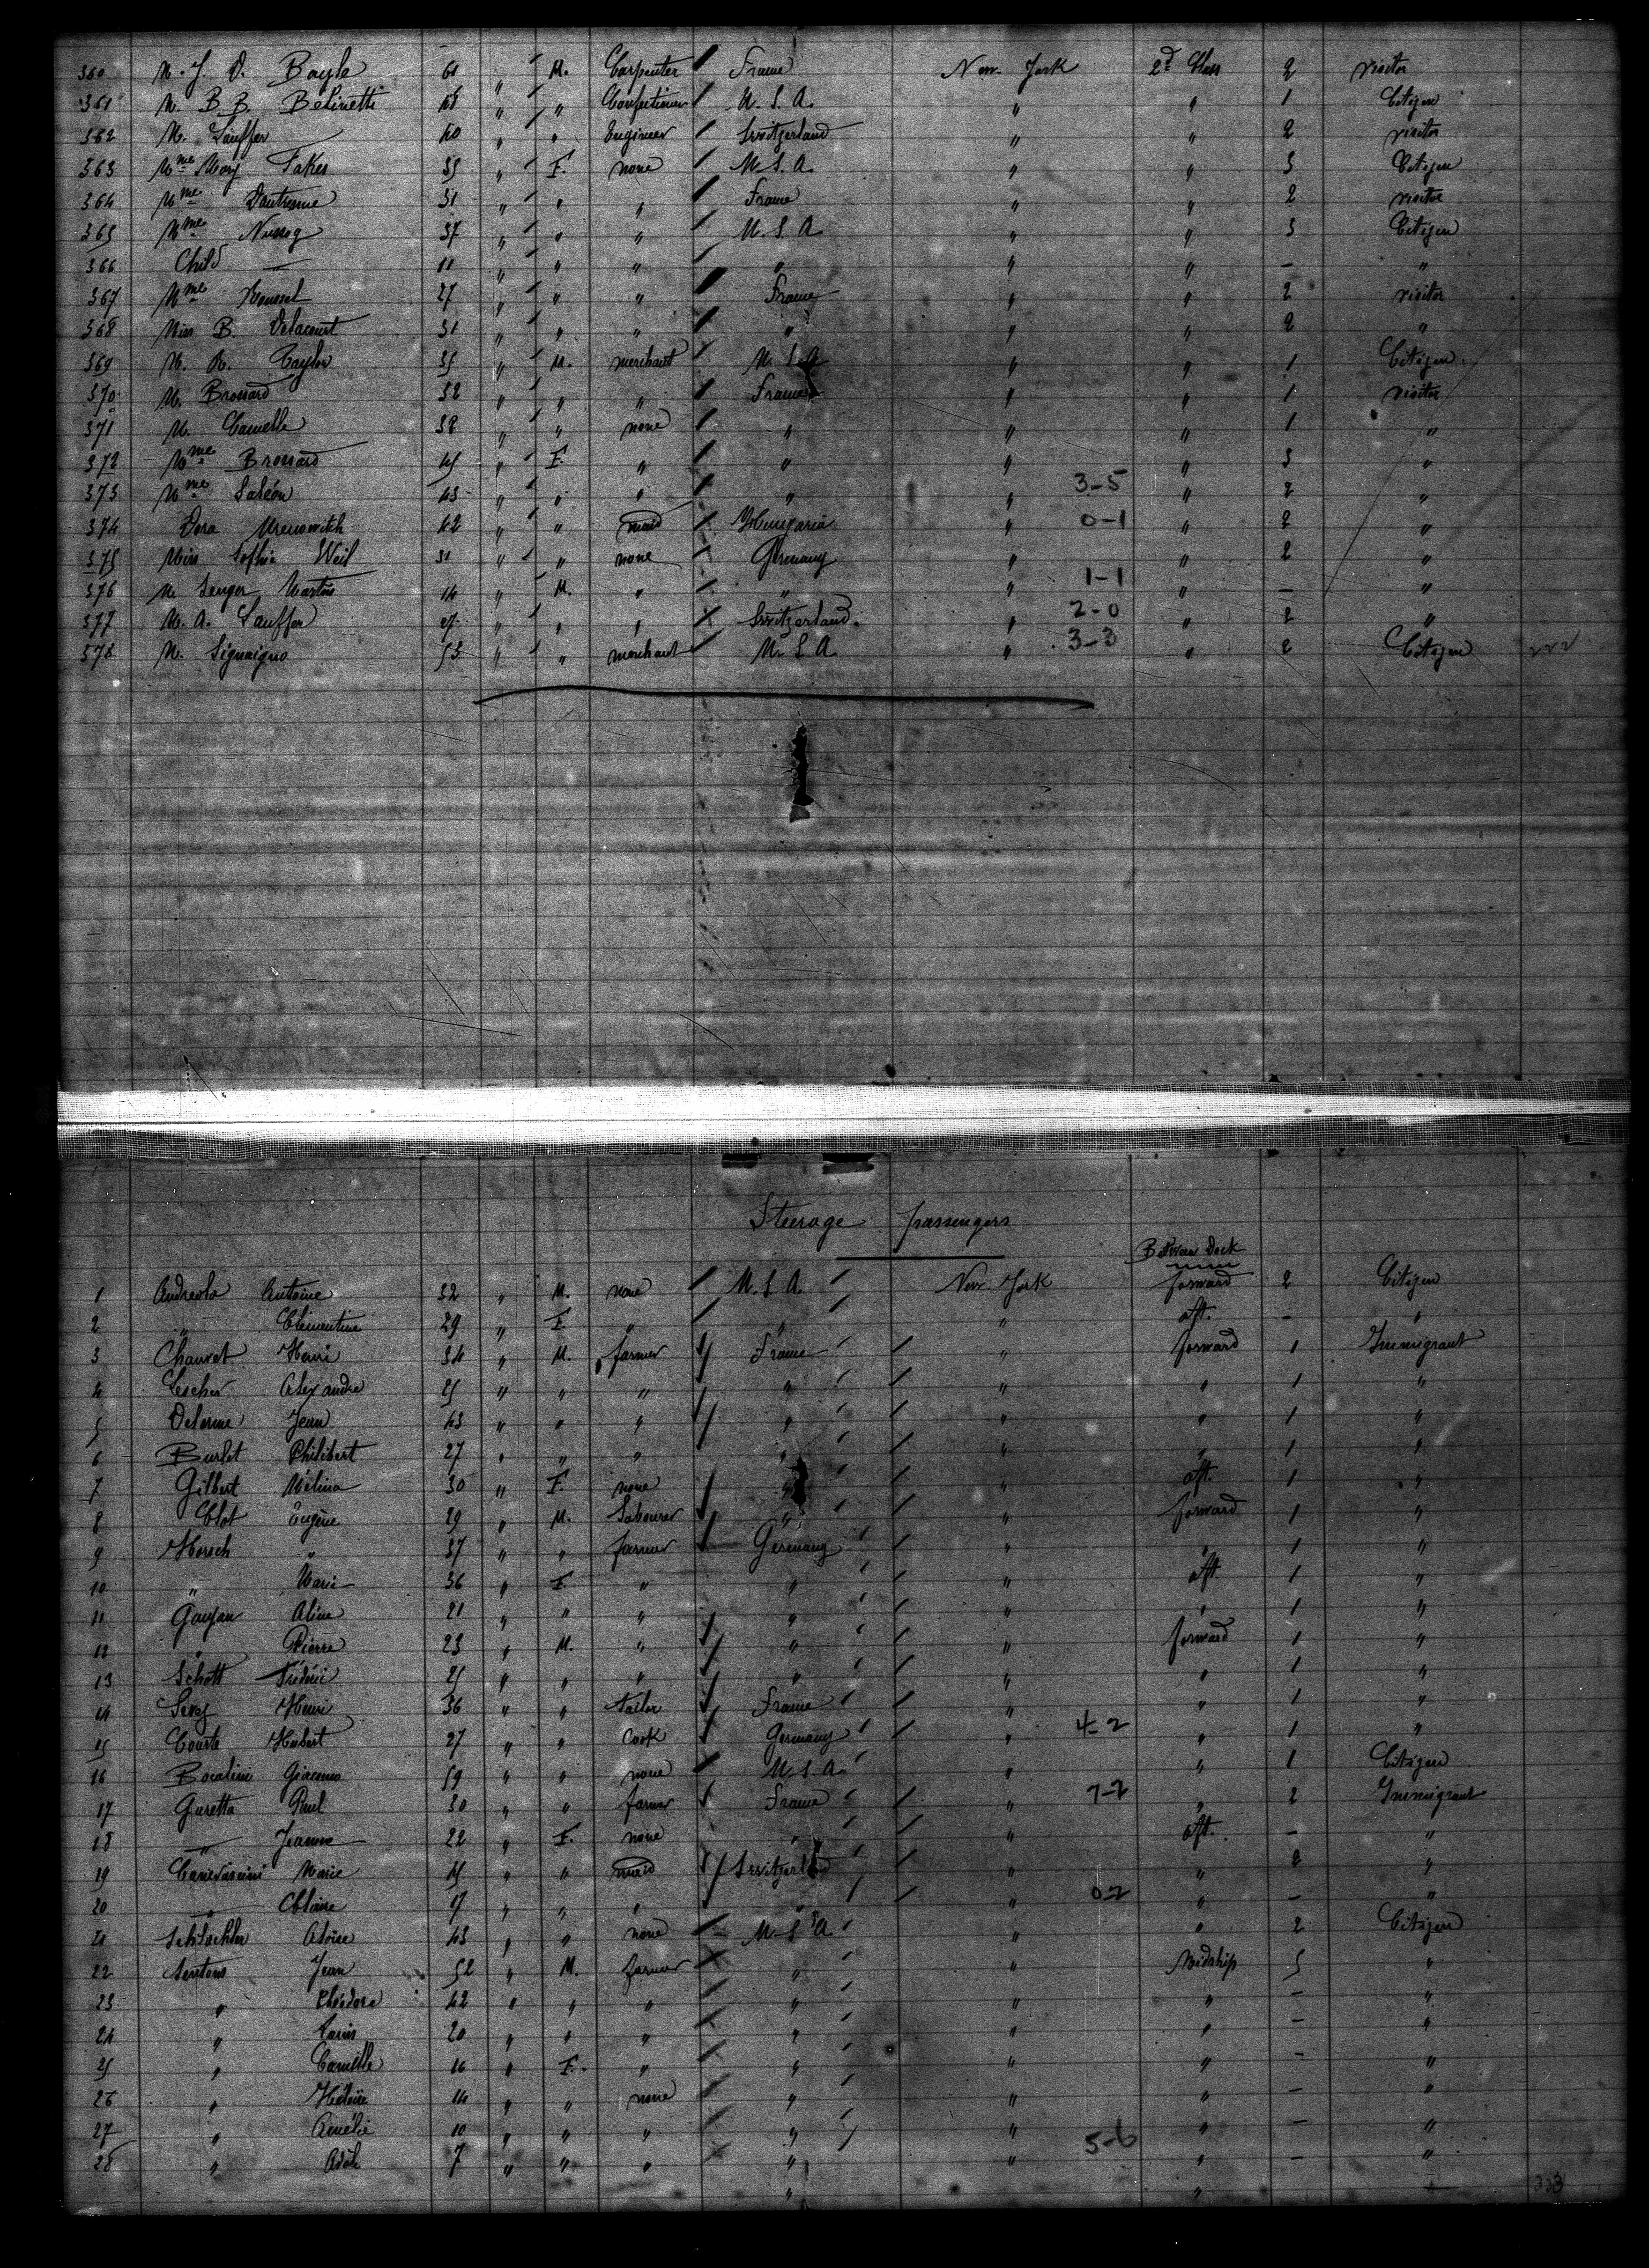 360 M. J. D. Bayle 61 " M. Carpenter France New-York 2d Class 2 visitor
361 M. B B. Belinetti " " Confectioner U. S. A. " " 1 Citizen
362 M. Lauffer 40 " " Engineer Switzerland " " 2 visitor
363 Mme Mary Fakes 35 " F. none U. S. A. " " 3 Citizen
364 Mme Dautresme 31 " " " France " " 2 visitor
365 Mme 37 " " " U. S. A " " 3 Citizen
366 Child — 11 " " " " " " — "
367 Mme Roussel 27 " " " France " " 2 visitor
368 Miss B. Delacourt 31 " " " " " " 2 "
369 M. R. Taylor 35 " M. merchant U. S. A " " 1 Citizen
370 M. Brossard 52 " " " France " " 1 visitor
371 M. Camelle 38 " " none " " " 1 "
372 Mme Brossard 45 " F. " " " " 3 "
373 Mme Saléon 43 " " " " " 3-5 " 2 "
374 Dora 42 " " maid Hungaria " 0-1 " 2 "
375 Miss Sophia Weil 31 " " none Germany " " 2 "
376 M. Senger Martin 14 " M. " " " 1-1 " — "
377 M. A. Lauffer 27 " " " Switzerland " 2-0 " 2 "
378 M. Signaigno 53 " " merchant U. S. A. " 3-3 " 2 Citizen
Steerage passengers
Between Deck
1 Andreola Antoine 32 " M. none U. S. A. New-York forward 2 Citizen
2 " Clementine 29 " F. " " " aft. — "
3 Chauvet Henri 34 " M. farmer France " forward 1 Immigrant
4 Lescher Alexandre 25 " " " " " " 1 "
5 Delorme Jean 43 " " " " " " 1 "
6 Burlet Philibert 27 " " " " " " 1 "
7 Gilbert Mélina 30 " F. none " " aft. 1 "
8 Clot Eugène 29 " M. Labourer " " forward 1 "
9 Horsch " 37 " " farmer Germany " " 1 "
10 " Marie 36 " F. " " " aft 1 "
11 Goujan Aline 21 " " " " " " 1 "
12 " Pierre 23 " M. " " " forward 1 "
13 Schott Frédéric 25 " " " " " " 1 "
14 Henri 36 " " tailor France " " 1 "
15 Courte Hubert 27 " " Cook Germany " 4-2 " 1 "
16 Bocalini Giacomo 59 " " none U. S. A. " " 1 Citizen
17 Guretta Paul 30 " " farmer France " 7-2 " 2 Immigrant
18 " Jeanne 22 " F. none " " aft. — "
19 Canevascini Marie 45 " " maid Switzerland " " 2 "
20 " Claire 17 " " " " " 0-2 " — "
21 Schlachter Aloise 43 " " none U. S. A. " " 2 Citizen
22 Sentous Jean 52 " M. farmer " " Midship 5 "
23 " Théodore 42 " " " " " " — "
24 " Louis 20 " " " " " " — "
25 " Camille 16 " F. " " " " — "
26 " 14 " " none " " " — "
27 " Amélie 10 " " " " " " — "
28 " Adèle 7 " " " " " 5-6 " — "
" "